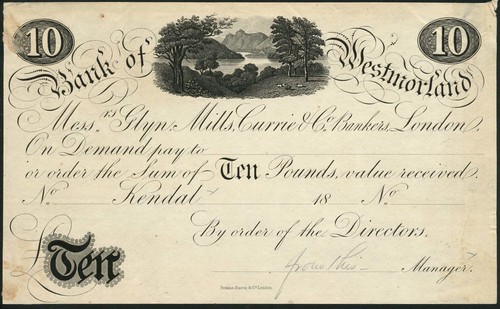 10 10
Bank of Westmorland
Mess.rs Glyn, Mills, Currie & Co. Bankers, London.
On Demand pay to
or order the Sum of Ten Pounds, value received.
No. Kendal 18 No.
By order of the Directors.
£Ten
Manager.